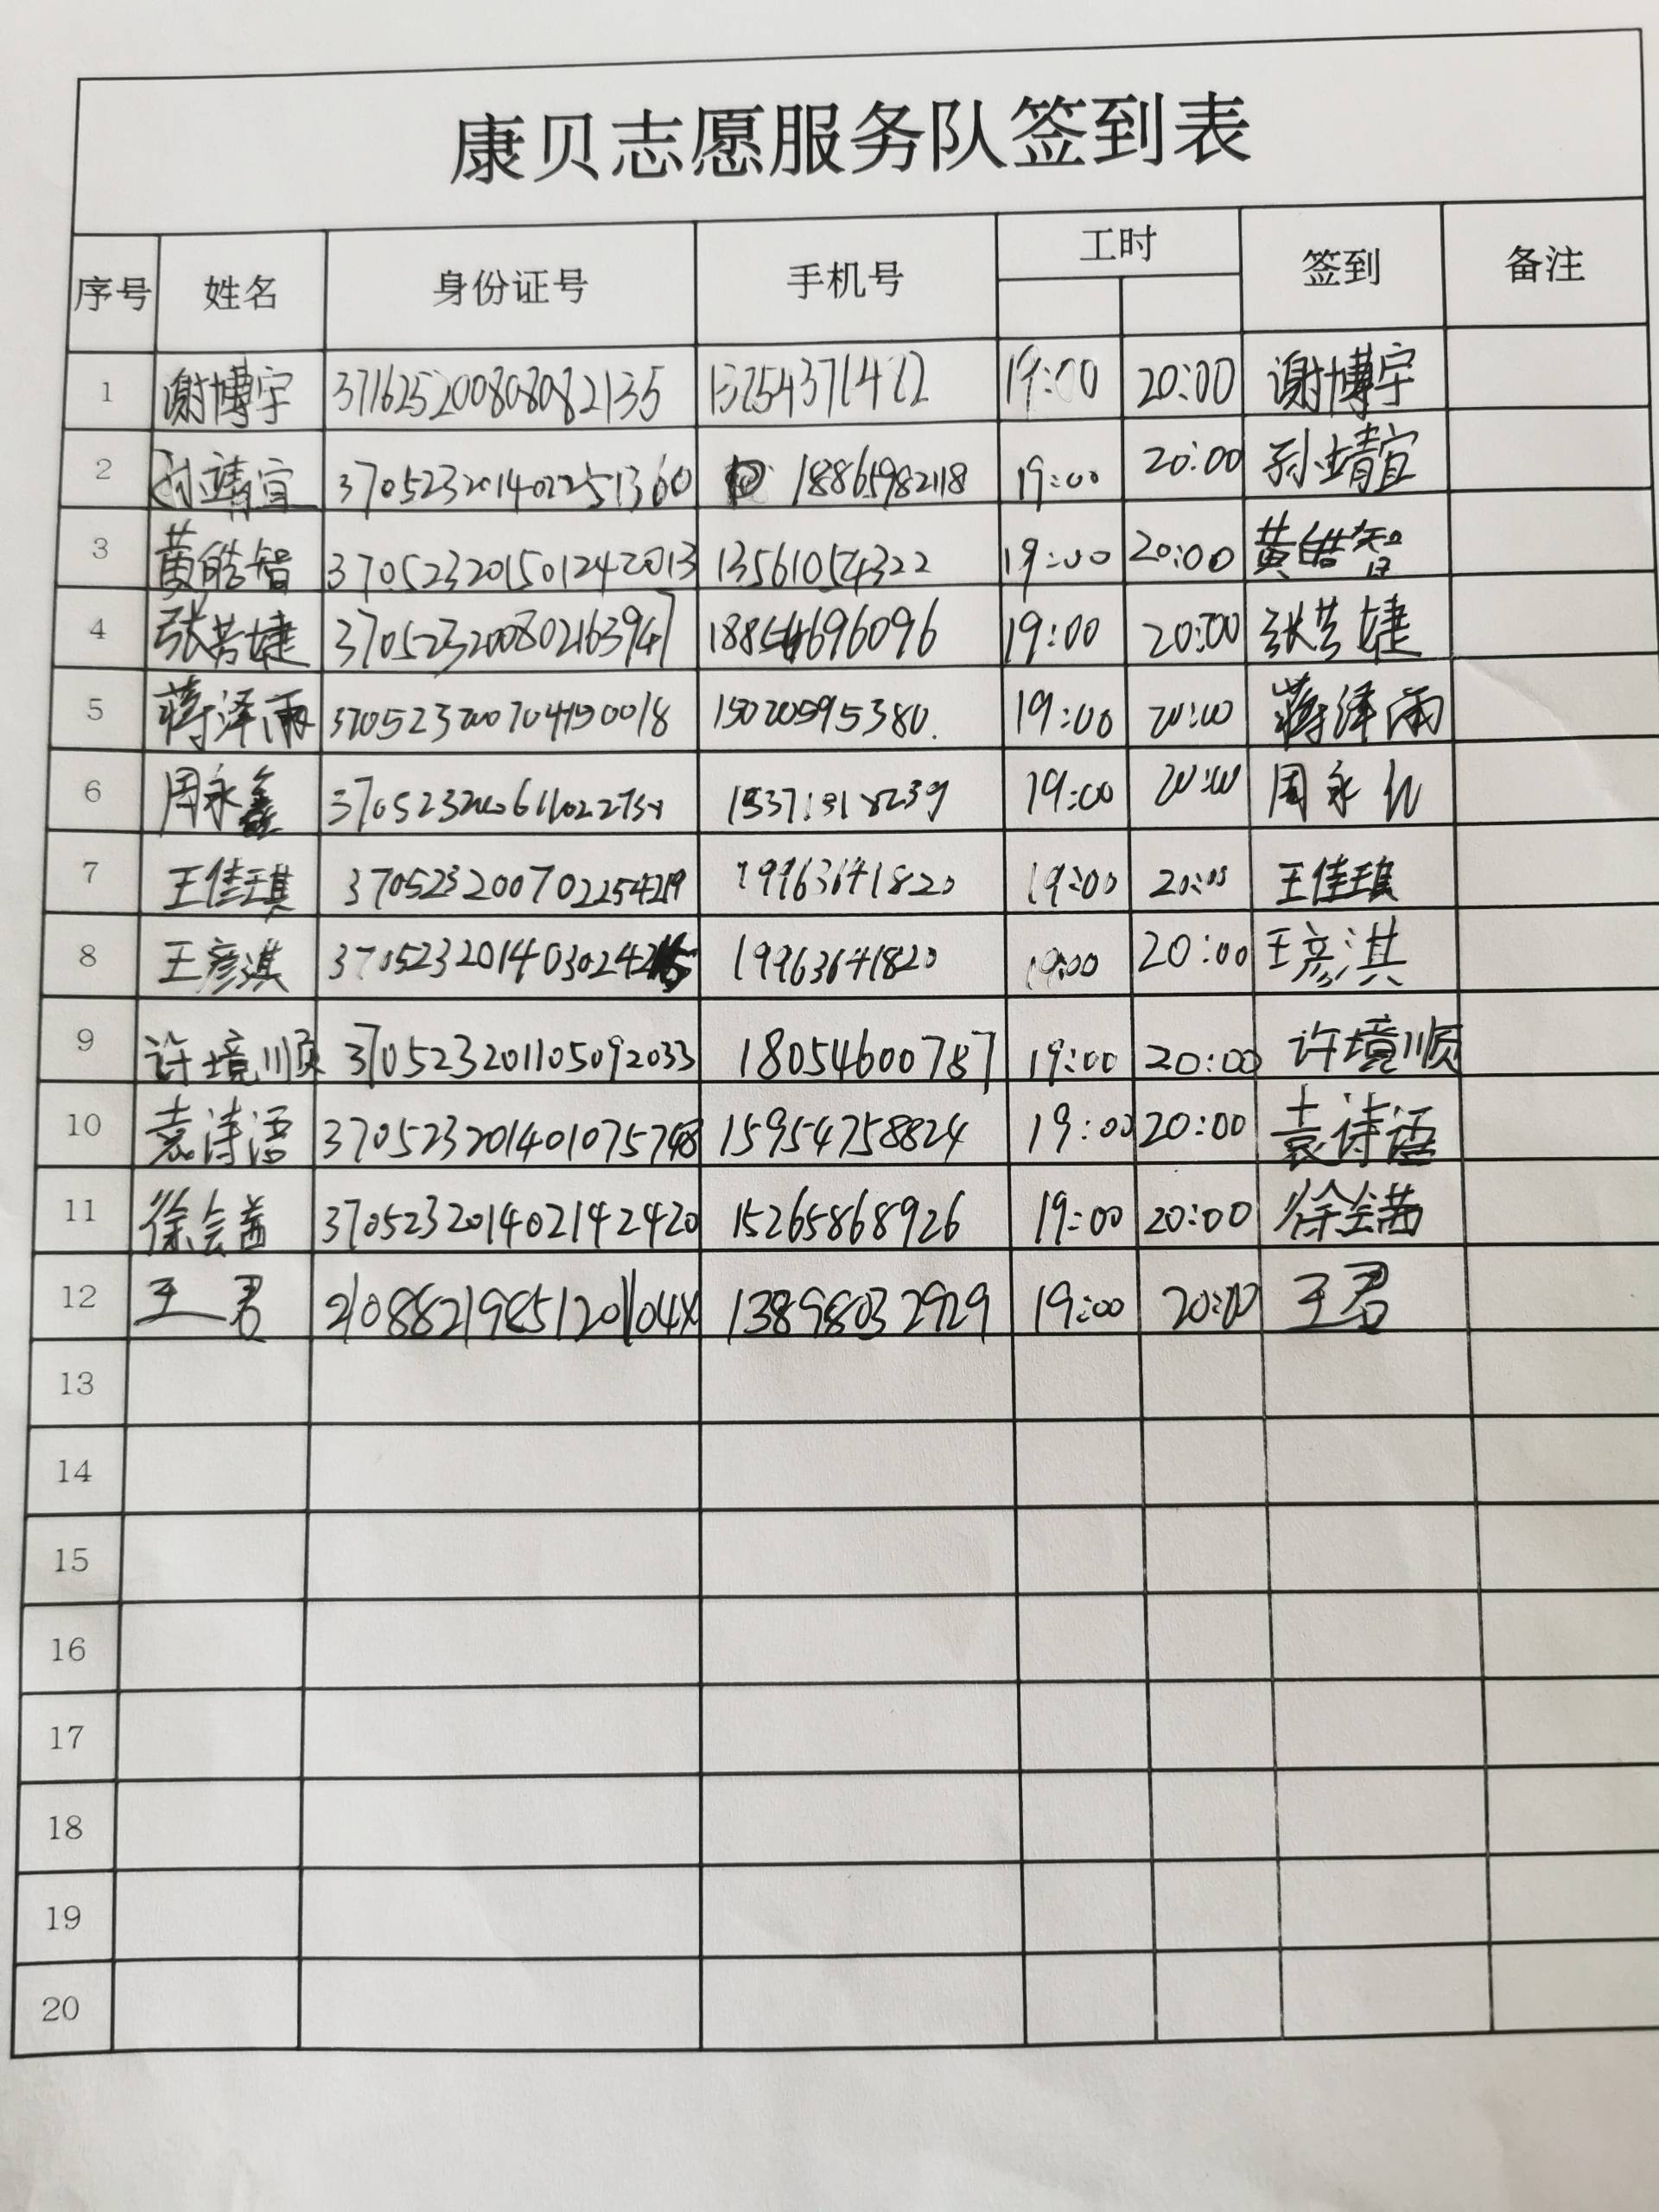 康贝志愿服务队签到表
序号 姓名 身份证号 手机号 工时 签到 备注
1 谢博宇 371625200808082135 19:00 20:00 谢博宇
2 孙靖宜 370523201402251360 18865982118 19:00 20:00 孙靖宜
3 黄皓智 370523201501242013 13561054322 19:00 20:00 黄皓智
4 张芸婕 370523200802163947 18854696096 19:00 20:00 张芸婕
5 蒋泽雨 370523200704190018 15020595380. 19:00 20:00 蒋泽雨
6 周永鑫 19:00 20:00 周永
7 王佳琪 19963641820 19:00 20:00 王佳琪
8 王彦淇 19963641820 19:00 20:00 王彦淇
9 许境顺 370523201105092033 18054600787 19:00 20:00 许境顺
10 袁诗语 370523201401075748 15954758824 19:00 20:00 袁诗语
11 徐会茜 370523201402142420 15265868926 19:00 20:00 徐会茜
12 王君 21088219851201104X 13898032929 19:00 20:00 王君
13
14
15
16
17
18
19
20